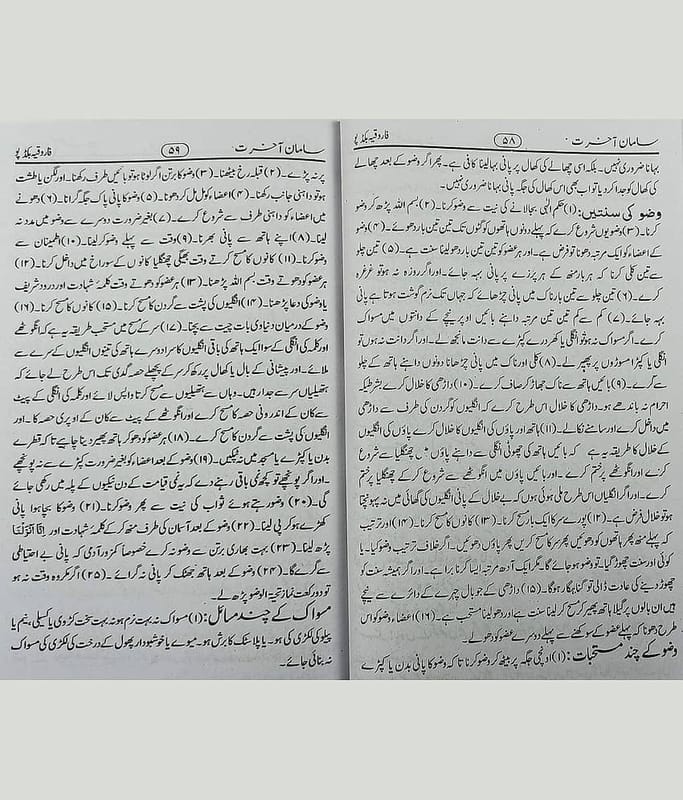 سامان آخرت ۵۸ فاروقیہ بکڈپو
بہانا ضروری نہیں۔ بلکہ اسی چھالے کی کھال پر پانی بہالینا کافی ہے۔ پھر اگر وضو کے بعد چھالے
کی کھال کو جدا کر دیا تو اب بھی اس کھال کی جگہ پانی بہانا ضروری نہیں۔
وضو کی سنتیں: (۱) حکم الٰہی بجالانے کی نیت سے وضو کرنا۔ (۲) بسم اللہ پڑھ کر وضو
کرنا۔ (۳) وضو یوں شروع کرے کہ پہلے دونوں ہاتھوں کو گٹوں تک تین تین بار دھوئے۔ (۴) وضو
کے اعضاء کو ایک مرتبہ دھونا تو فرض ہے۔ اور ہر عضو کو تین تین بار دھولینا سنت ہے۔ (۵) تین چلو
سے تین کلی کرنا کہ ہر بار منھ کے ہر پرزے پر پانی بہہ جائے۔ اور اگر روزہ نہ ہو تو غرغرہ
کرے۔ (۶) تین چلو سے تین بار ناک میں پانی چڑھائے کہ جہاں تک نرم گوشت ہوتا ہے پانی
بہہ جائے۔ (۷) کم سے کم تین تین مرتبہ داہنے بائیں اوپر نیچے کے دانتوں میں مسواک
کرے۔ اگر مسواک نہ ہو تو انگلی یا کھردرے کپڑے سے دانت مانجھ لے۔ اور اگر دانت نہ ہوں تو
انگلی یا کپڑا مسوڑوں پر پھیر لے۔ (۸) کلی اور ناک میں پانی چڑھانا دونوں داہنے ہاتھ کے چلو
سے کرے۔ (۹) بائیں ہاتھ سے ناک جھاڑ کر صاف کرے۔ (۱۰) داڑھی کا خلال کرے بشرطیکہ
احرام نہ باندھے ہو۔ داڑھی کا خلال اس طرح کرے کہ انگلیوں کو گردن کی طرف سے داڑھی
میں داخل کرے اور سامنے نکالے۔ (۱۱) ہاتھ اور پاؤں کی انگلیوں کا خلال کرے پاؤں کی انگلیوں
کے خلال کا طریقہ یہ ہے کہ بائیں ہاتھ کی چھوٹی انگلی سے داہنے پاؤں میں چھنگلیا سے شروع
کرے اور انگوٹھے پر ختم کرے۔ اور بائیں پاؤں میں انگوٹھے سے شروع کر کے چھنگلیا پر ختم
کرے۔ اور اگر انگلیاں اس طرح ملی ہوئی ہوں کہ بے خلال کے پانی انگلیوں کی گھائی میں نہ پہونچتا
ہو تو خلال فرض ہے۔ (۱۲) پورے سر کا ایک بار مسح کرنا۔ (۱۳) کانوں کا مسح کرنا۔ (۱۴) اور ترتیب
کہ پہلے منھ پھر ہاتھوں کو دھوئیں پھر سر کا مسح کریں پھر پاؤں دھوئیں۔ اگر خلاف ترتیب وضو کیا۔ یا
کوئی اور سنت چھوڑ گیا۔ تو وضو ہو جائے گا۔ مگر ایک آدھ مرتبہ ایسا کرنا برا ہے۔ اور اگر ہمیشہ سنت کو
چھوڑ دینے کی عادت ڈالی تو گناہگار ہوگا۔ (۱۵) داڑھی کے جو بال چہرے کے دائرے سے نیچے
ہیں ان بالوں پر گیلا ہاتھ پھیر کر مسح کر لینا سنت ہے اور دھو لینا مستحب ہے۔ (۱۶) اعضاء وضو کو اس
طرح دھونا کہ پہلے عضو کے سوکھنے سے پہلے دوسرے عضو کو دھو لے۔
وضو کے چند مستحبات: (۱) اونچی جگہ پر بیٹھ کر وضو کرنا تا کہ وضو کا پانی بدن یا کپڑے
سامان آخرت ۵۹ فاروقیہ بکڈپو
پر نہ پڑے۔ (۲) قبلہ رخ بیٹھنا۔ (۳) وضو کا برتن اگر لوٹا ہو تو بائیں طرف رکھنا۔ اور لگن یا طشت
ہو تو داہنی جانب رکھنا۔ (۴) اعضاء کو مل مل کر دھونا۔ (۵) وضو کا پانی پاک جگہ گرانا۔ (۶) دھونے
میں اعضاء کو داہنی طرف سے شروع کرے۔ (۷) بغیر ضرورت دوسرے سے وضو میں مدد نہ
لینا۔ (۸) اپنے ہاتھ سے پانی بھرنا۔ (۹) وقت سے پہلے وضو کر لینا۔ (۱۰) اطمینان سے
وضو کرنا۔ (۱۱) کانوں کا مسح کرتے وقت بھیگی چھنگلیا کانوں کے سوراخ میں داخل کرنا۔ (۱۲)
ہر عضو کو دھوتے وقت بسم اللہ پڑھنا۔ (۱۳) ہر عضو کو دھوتے وقت کلمۂ شہادت اور درود شریف
یا وضو کی دعا پڑھنا۔ (۱۴) انگلیوں کی پشت سے گردن کا مسح کرنا۔ (۱۵) کانوں کا مسح کرنا۔ (۱۶)
وضو کے درمیان دنیاوی بات چیت سے بچنا۔ (۱۷) سر کے مسح میں مستحب طریقہ یہ ہے کہ انگوٹھے
اور کلمہ کی انگلی کے سوا ایک ہاتھ کی باقی انگلیوں کا سرا دوسرے ہاتھ کی تینوں انگلیوں کے سرے سے
ملائے۔ اور پیشانی کے بال یا کھال پر رکھ کر سر کے پچھلے حصہ گدی تک اس طرح لے جائے کہ
ہتھیلیاں سر سے جدا رہیں۔ وہاں سے ہتھیلیوں سے مسح کرتا واپس لائے اور کلمہ کی انگلی کے پیٹ
سے کان کے اندرونی حصہ کا مسح کرے اور انگوٹھے کے پیٹ سے کان کے اوپری حصہ کا۔ اور
انگلیوں کی پشت سے گردن کا مسح کرے۔ (۱۸) ہر عضو کو دھو کر ہاتھ پھیر دینا چاہیے تا کہ قطرے
بدن یا کپڑے یا مسجد میں نہ ٹپکیں۔ (۱۹) وضو کے بعد اعضاء کو بغیر ضرورت کپڑے سے نہ پونچھے
۔ اور اگر پونچھے تو کچھ نمی باقی رہنے دے کہ یہ نمی قیامت کے دن نیکیوں کے پلہ میں رکھی جائے
گی۔ (۲۰) وضو رہتے ہوئے ثواب کی نیت سے پھر وضو کرنا۔ (۲۱) وضو کا بچا ہوا پانی
کھڑے ہو کر پی لینا۔ (۲۲) وضو کے بعد آسمان کی طرف منھ کر کے کلمۂ شہادت اور اِنَّا اَنْزَلْنَا
پڑھ لینا۔ (۲۳) بہت بھاری برتن سے وضو نہ کرے خصوصاً کمزور آدمی کہ پانی بے احتیاطی
سے گرے گا۔ (۲۴) وضو کے بعد ہاتھ جھٹک کر پانی نہ گرائے۔ (۲۵) اگر مکروہ وقت نہ ہو
تو دو رکعت نماز تحیۃ الوضو پڑھ لے۔
مسواک کے چند مسائل: (۱) مسواک نہ بہت نرم ہو نہ بہت سخت کڑوی یا کسیلی، نیم یا
پیلو کی لکڑی کی ہو۔ یا پلاسٹک کا برش ہو۔ میوے یا خوشبودار پھول کے درخت کی لکڑی کی مسواک
نہ بنائی جائے۔